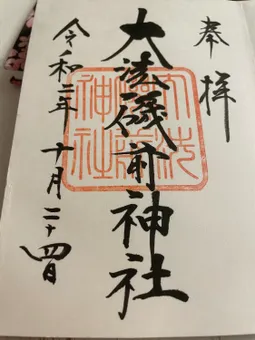 奉拝
大洗磯前神社
令和二年 十月二十四日
大洗
磯前
神社